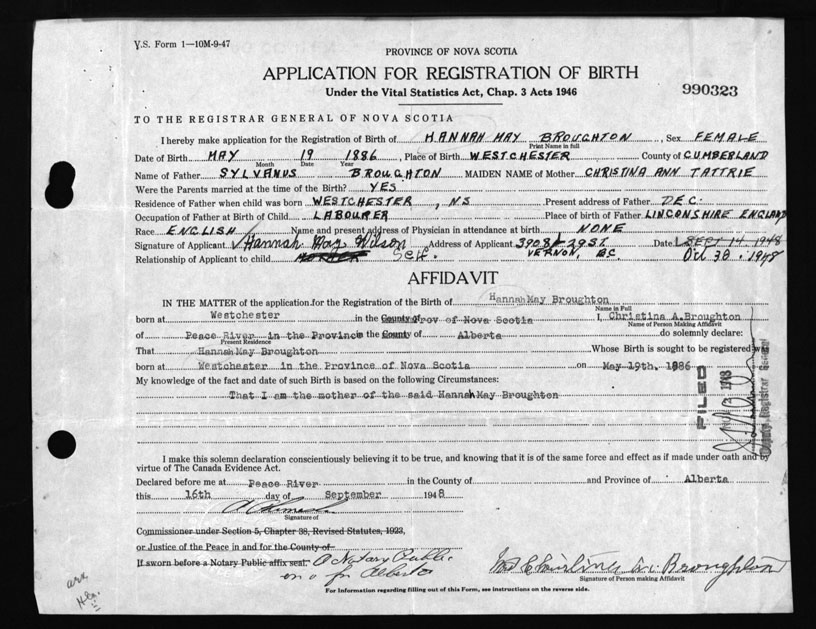 V.S. Form 1—10M-9-47
PROVINCE OF NOVA SCOTIA
APPLICATION FOR REGISTRATION OF BIRTH
Under the Vital Statistics Act, Chap. 3 Acts 1946
990323
TO THE REGISTRAR GENERAL OF NOVA SCOTIA
I hereby make application for the Registration of Birth of HANNAH MAY BROUGHTON, Sex FEMALE
Print Name in full
Date of Birth MAY 19 1886, Place of Birth WESTCHESTER County of CUMBERLAND
Month Day Year
Name of Father SYLVANUS BROUGHTON MAIDEN NAME of Mother CHRISTINA ANN TATTRIE
Were the Parents married at the time of the Birth? YES
Residence of Father when child was born WESTCHESTER, NS Present address of Father DEC.
Occupation of Father at Birth of Child LABOURER Place of birth of Father LINCONSHIRE ENGLAND
Race ENGLISH Name and present address of Physician in attendance at birth NONE
Signature of Applicant Hannah May Wilson Address of Applicant 3908 29ST Date SEPT 14 1948
Relationship of Applicant to child MOTHER Self. VERNON, BC. Oct 30. 1948
AFFIDAVIT
IN THE MATTER of the application for the Registration of the Birth of Hannah May Broughton
Name in Full
born at Westchester in the County of Prov of Nova Scotia I, Christina A. Broughton
Name of Person Making Affidavit
of Peace River in the Province the County of Alberta do solemnly declare:
Present Residence
That Hannah May Broughton Whose Birth is sought to be registered was
born at Westchester in the Province of Nova Scotia on May 19th. 1886
My knowledge of the fact and date of such Birth is based on the following Circumstances:
That I am the mother of the said Hannah May Broughton
FILED
Deputy Registrar General
I make this solemn declaration conscientiously believing it to be true, and knowing that it is of the same force and effect as if made under oath and by
virtue of The Canada Evidence Act.
Declared before me at Peace River in the County of and Province of Alberta
this 16th day of September 1948
Signature of
Commissioner under Section 5, Chapter 38, Revised Statutes, 1923,
or Justice of the Peace in and for the County of
If sworn before a Notary Public affix seal. A Notary Public
in & for Alberta
Broughton
Signature of Person making Affidavit
For Information regarding filling out of this Form, see instructions on the reverse side.